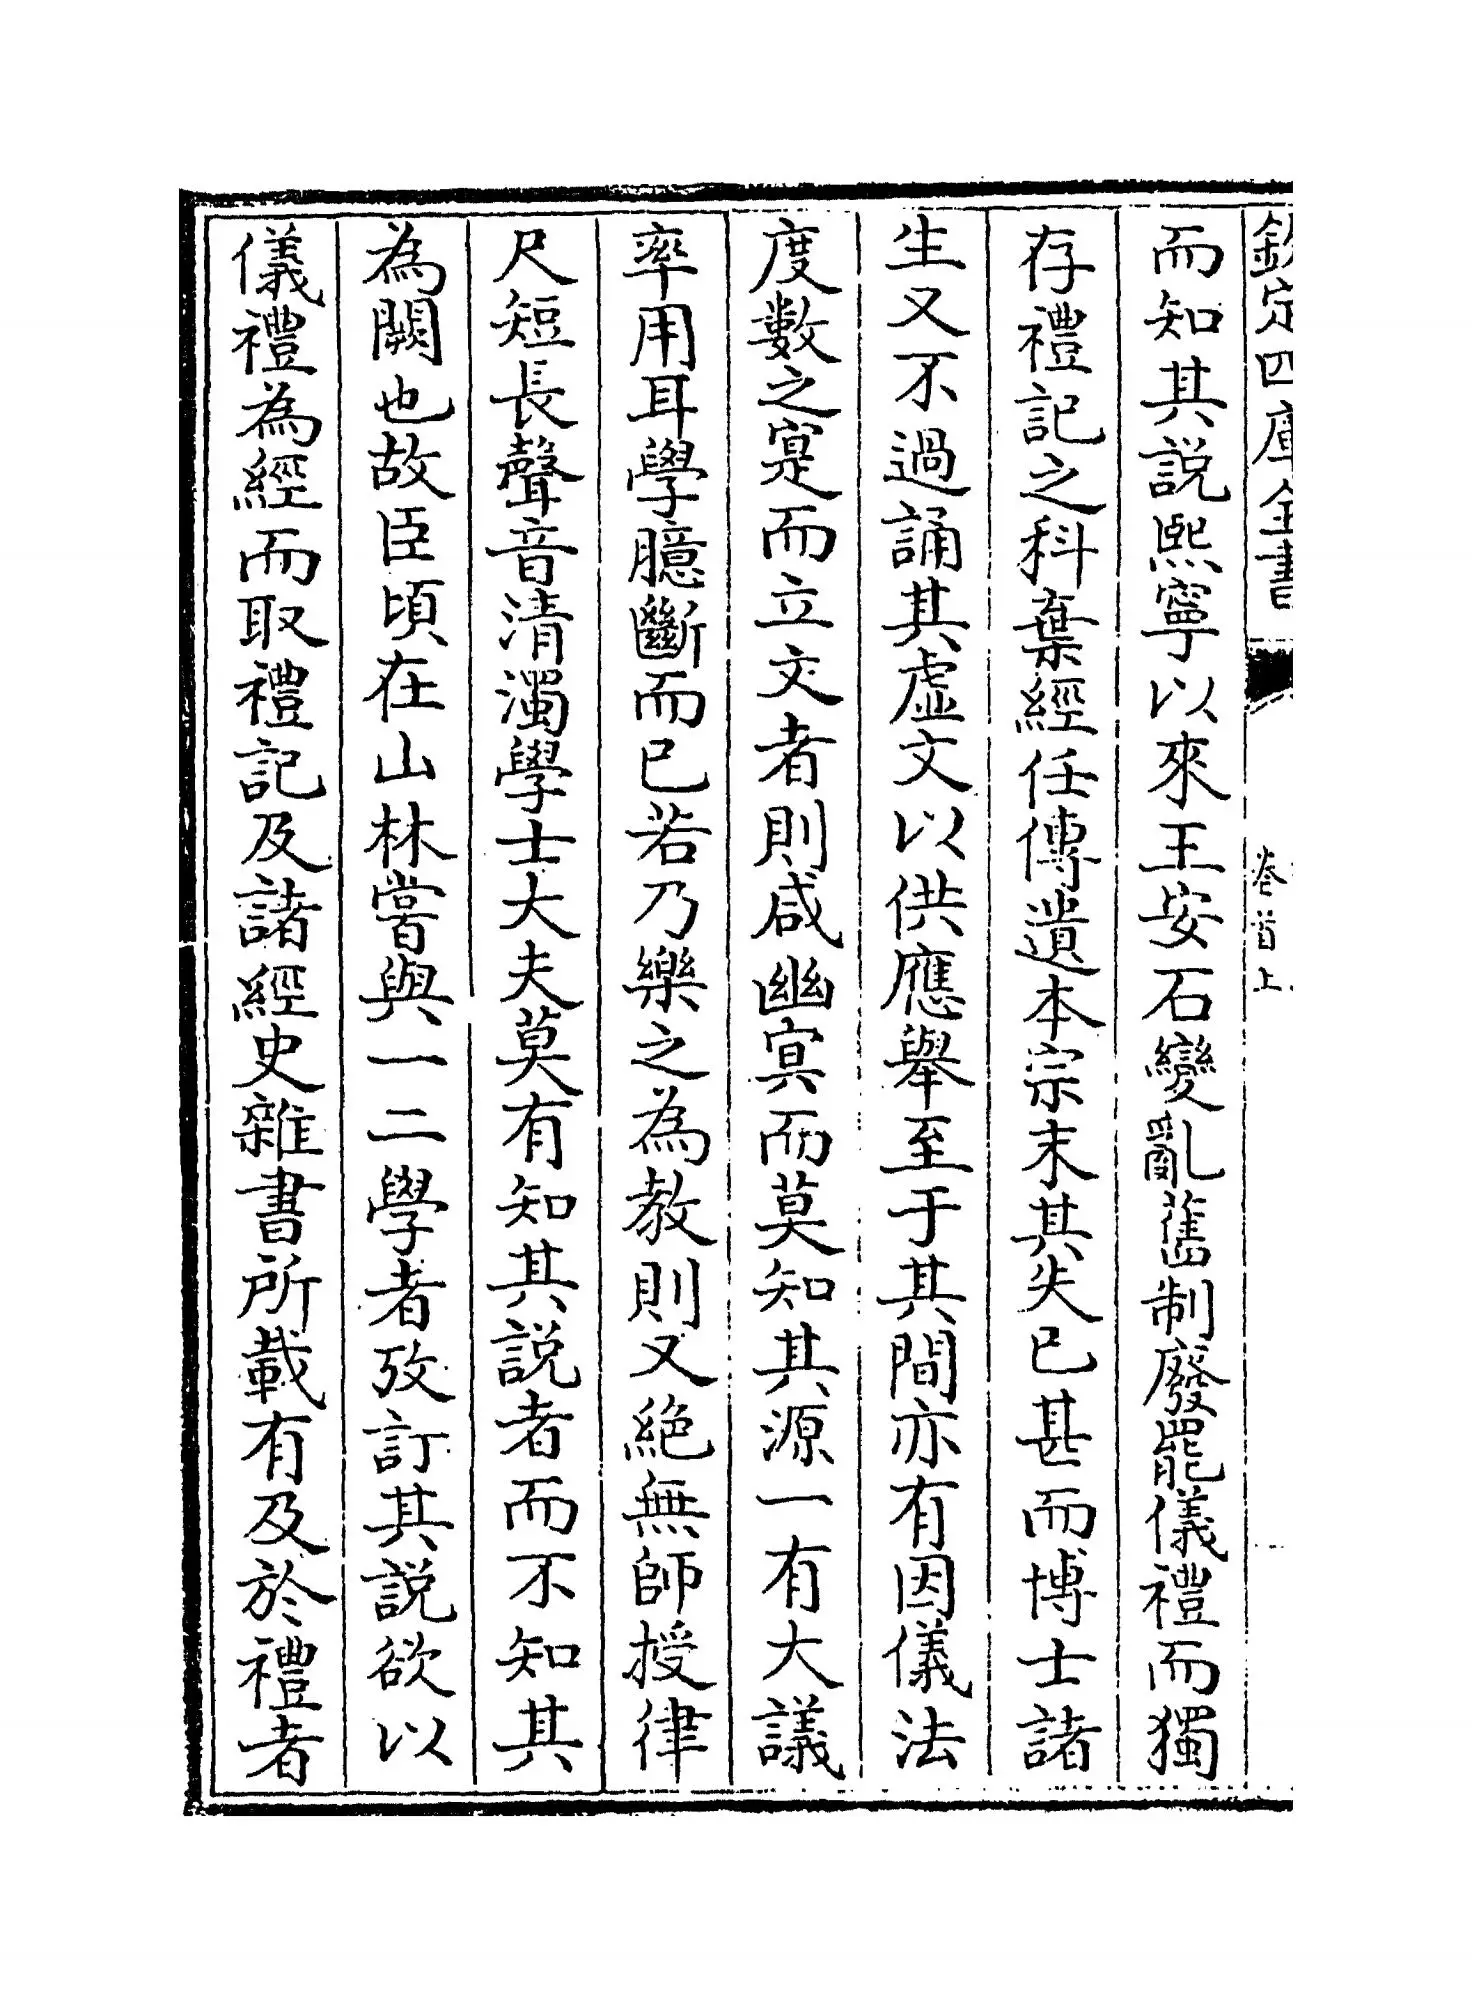 欽定四庫全書
卷首上
而知其説熙寧以來王安石變亂舊制廢罷儀禮而獨
存禮記之科棄經任傳遺本宗末其失已甚而博士諸
生又不過誦其虚文以供應舉至于其間亦有因儀法
度數之寔而立文者則咸幽㝠而莫知其源一有大議
率用耳學臆斷而已若乃樂之為教則又絶無師授律
尺短長聲音清濁學士大夫莫有知其説者而不知其
為闕也故臣頃在山林嘗與一二學者攷訂其説欲以
儀禮為經而取禮記及諸經史雜書所載有及於禮者